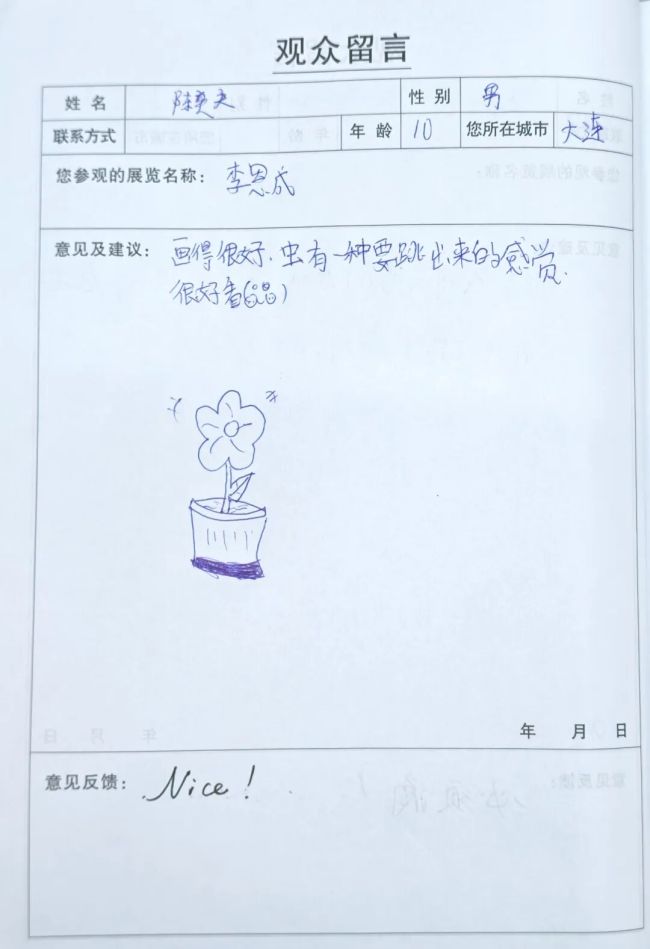 观众留言
姓 名 陈奕夫 性 别 男
联系方式 年 龄 10 您所在城市 大连
您参观的展览名称： 李恩成
意见及建议： 画得很好.虫有一种要跳出来的感觉.
很好看
年 月 日
意见反馈： Nice!